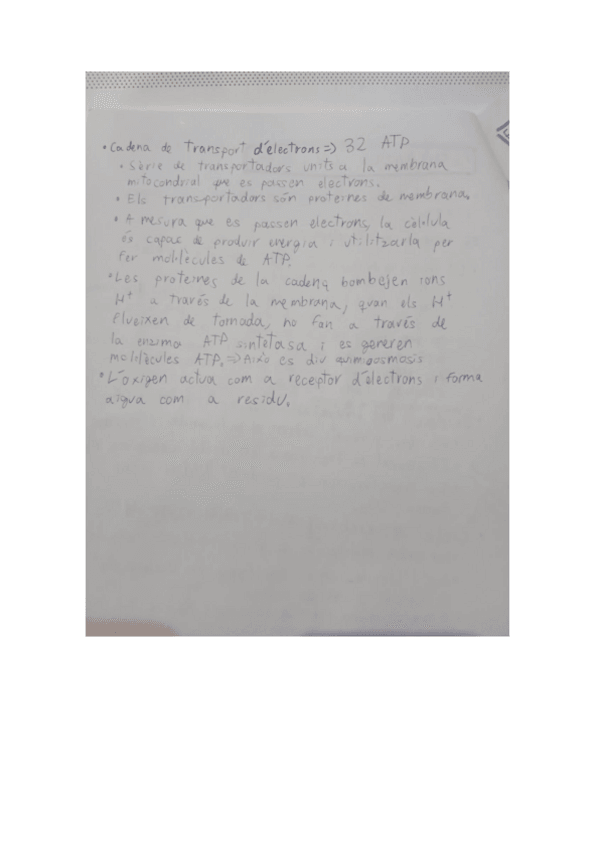 • Cadena de transport d'electrons => 32 ATP
• Sèrie de transportadors units a la membrana
mitocondrial que es passen electrons.
• Els transportadors són proteïnes de membrana.
• A mesura que es passen electrons, la cèl·lula
és capaç de produir energia i utilitzarla per
fer mol·lècules de ATP.
• Les proteïnes de la cadena bombejen ions
H⁺ a través de la membrana, quan els H⁺
flueixen de tornada, ho fan a través de
la enzima ATP sintetasa i es generen
mol·lècules ATP. => Això es diu quimiosmosis
• L'oxigen actua com a receptor d'electrons i forma
aigua com a residu.